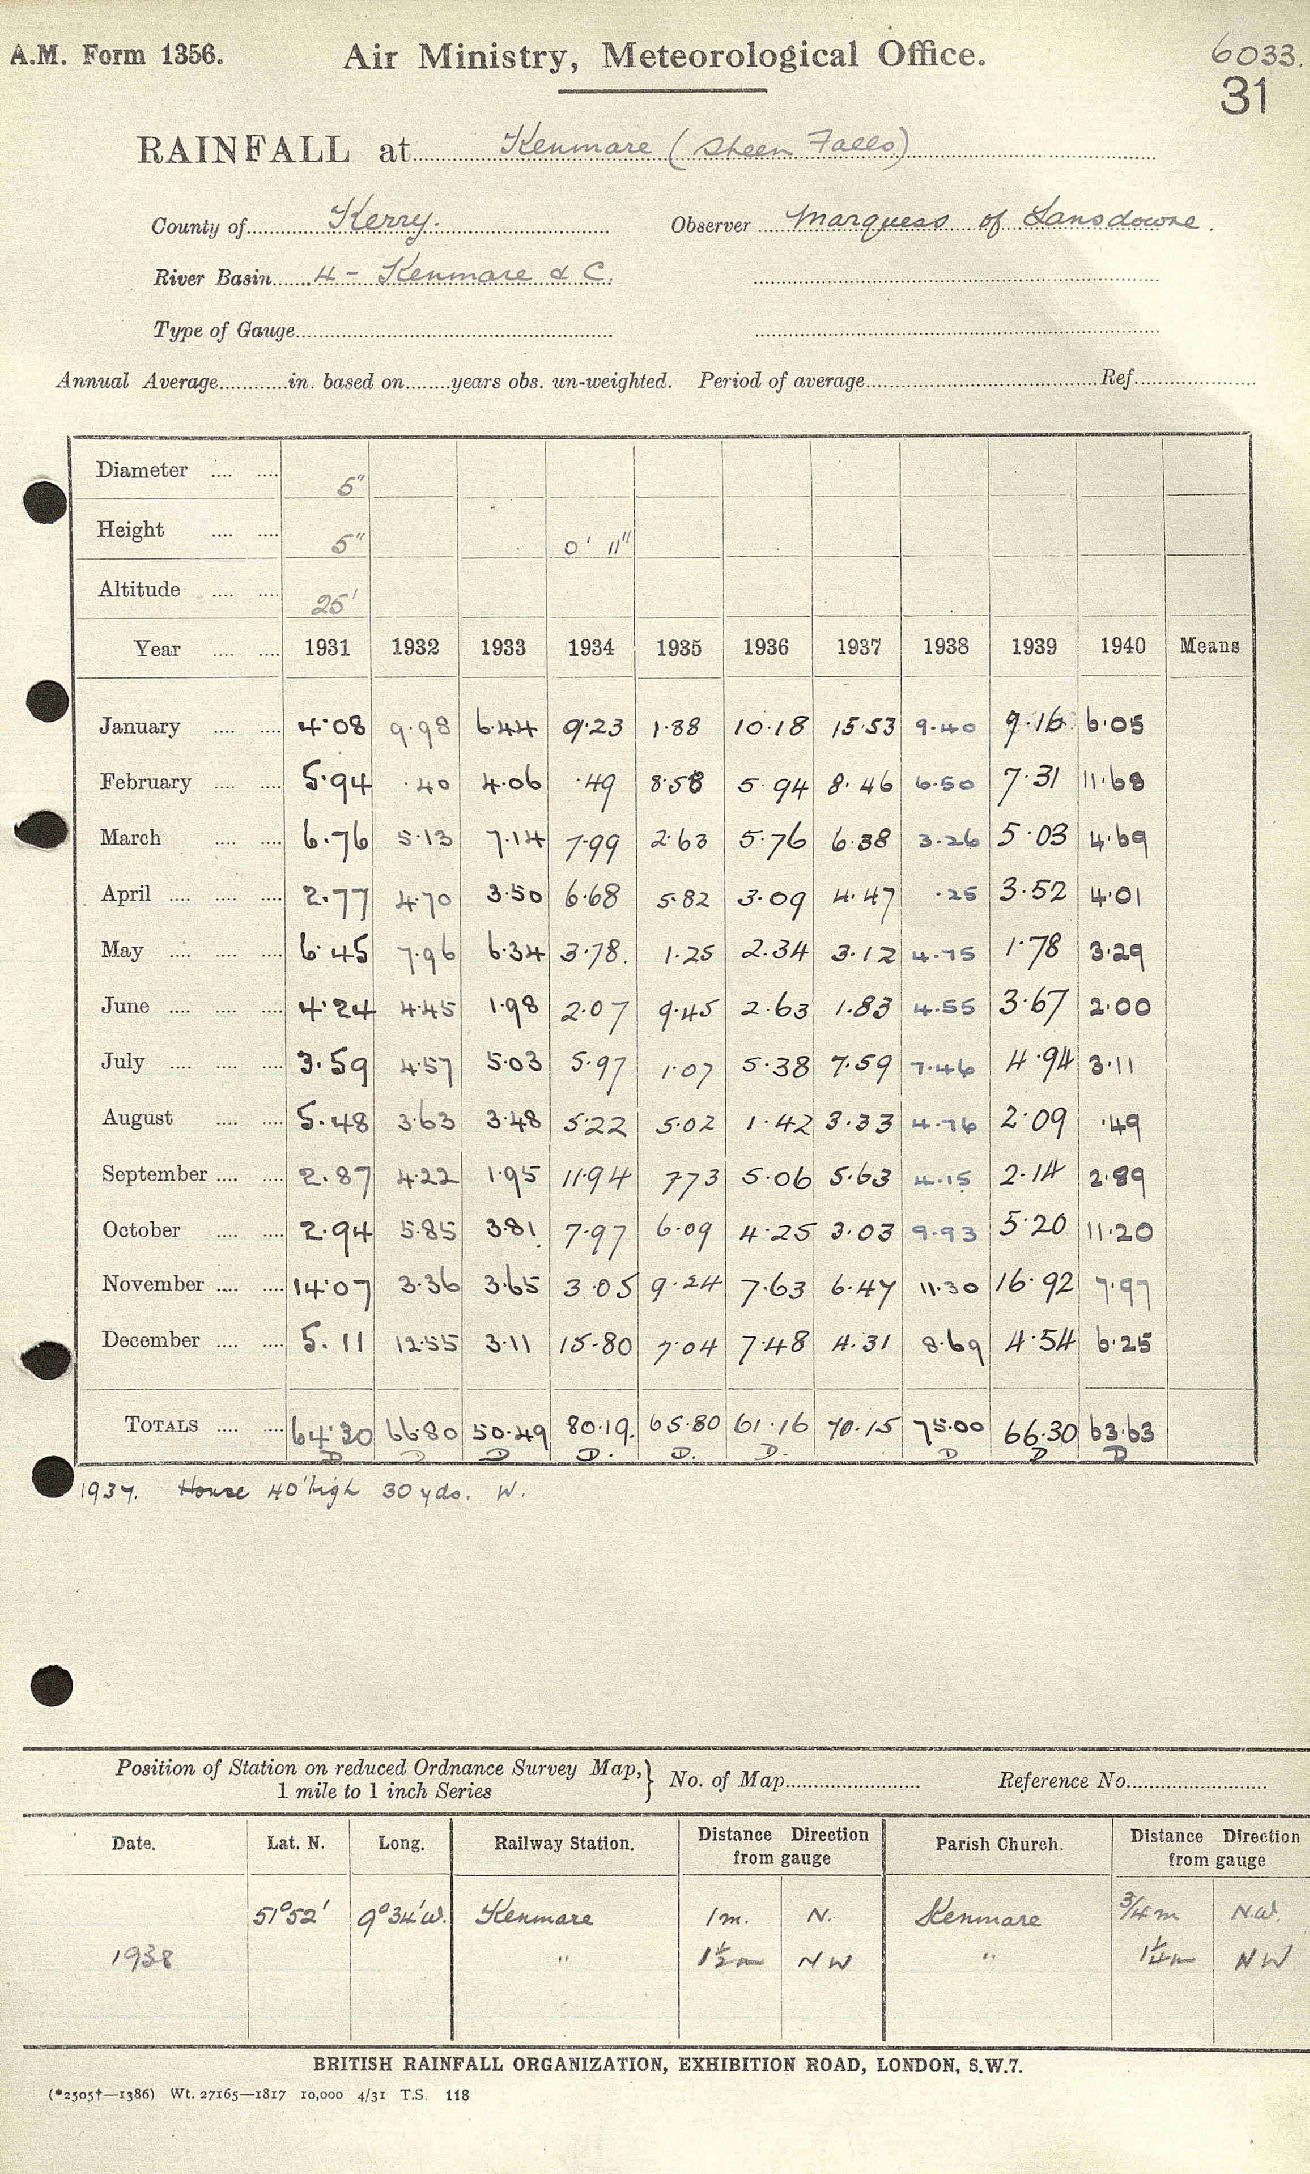 A.M. Form 1356. Air Ministry, Meteorological Office. 6033.
31
RAINFALL at Kenmare (Sheen Falls)
County of Kerry. Observer Marquess of Lansdowne.
River Basin 4 - Kenmare & C.
Type of Gauge
Annual Average in. based on years obs. un-weighted. Period of average Ref
Diameter 5"
Height 5" 0' 11"
Altitude 25'
Year 1931 1932 1933 1934 1935 1936 1937 1938 1939 1940 Means
January 4.08 9.98 6.44 9.23 1.88 10.18 15.53 9.40 9.16 6.05
February 5.94 .40 4.06 .49 8.58 5.94 8.46 6.50 7.31 11.68
March 6.76 5.13 7.14 7.99 2.63 5.76 6.38 3.26 5.03 4.69
April 2.77 4.70 3.50 6.68 5.82 3.09 4.47 .25 3.52 4.01
May 6.45 7.96 6.34 3.78. 1.25 2.34 3.12 4.75 1.78 3.29
June 4.24 4.45 1.98 2.07 9.45 2.63 1.83 4.55 3.67 2.00
July 3.59 4.57 5.03 5.97 1.07 5.38 7.59 7.46 4.94 3.11
August 5.48 3.63 3.48 5.22 5.02 1.42 3.33 4.76 2.09 .49
September 2.87 4.22 1.95 11.94 7.73 5.06 5.63 4.15 2.14 2.89
October 2.94 5.85 3.81 7.97 6.09 4.25 3.03 9.93 5.20 11.20
November 14.07 3.36 3.65 3.05 9.24 7.63 6.47 11.30 16.92 7.97
December 5.11 12.55 3.11 15.80 7.04 7.48 4.31 8.69 4.54 6.25
TOTALS 64.30 66.80 50.49 80.19. 65.80 61.16 70.15 75.00 66.30 63.63
D D D D. D. D. D D D
1937. House 40' high 30 yds. W.
Position of Station on reduced Ordnance Survey Map,} No. of Map Reference No.
1 mile to 1 inch Series
Date. Lat. N. Long. Railway Station. Distance Direction from gauge Parish Church. Distance Direction from gauge
51°52' 9°34'W. Kenmare 1m. N. Kenmare 3/4m N.W.
1938 " 1½m NW " 1¼m NW
BRITISH RAINFALL ORGANIZATION, EXHIBITION ROAD, LONDON, S.W.7.
(*2505†—1386) Wt. 27165—1817 10,000 4/31 T.S. 118